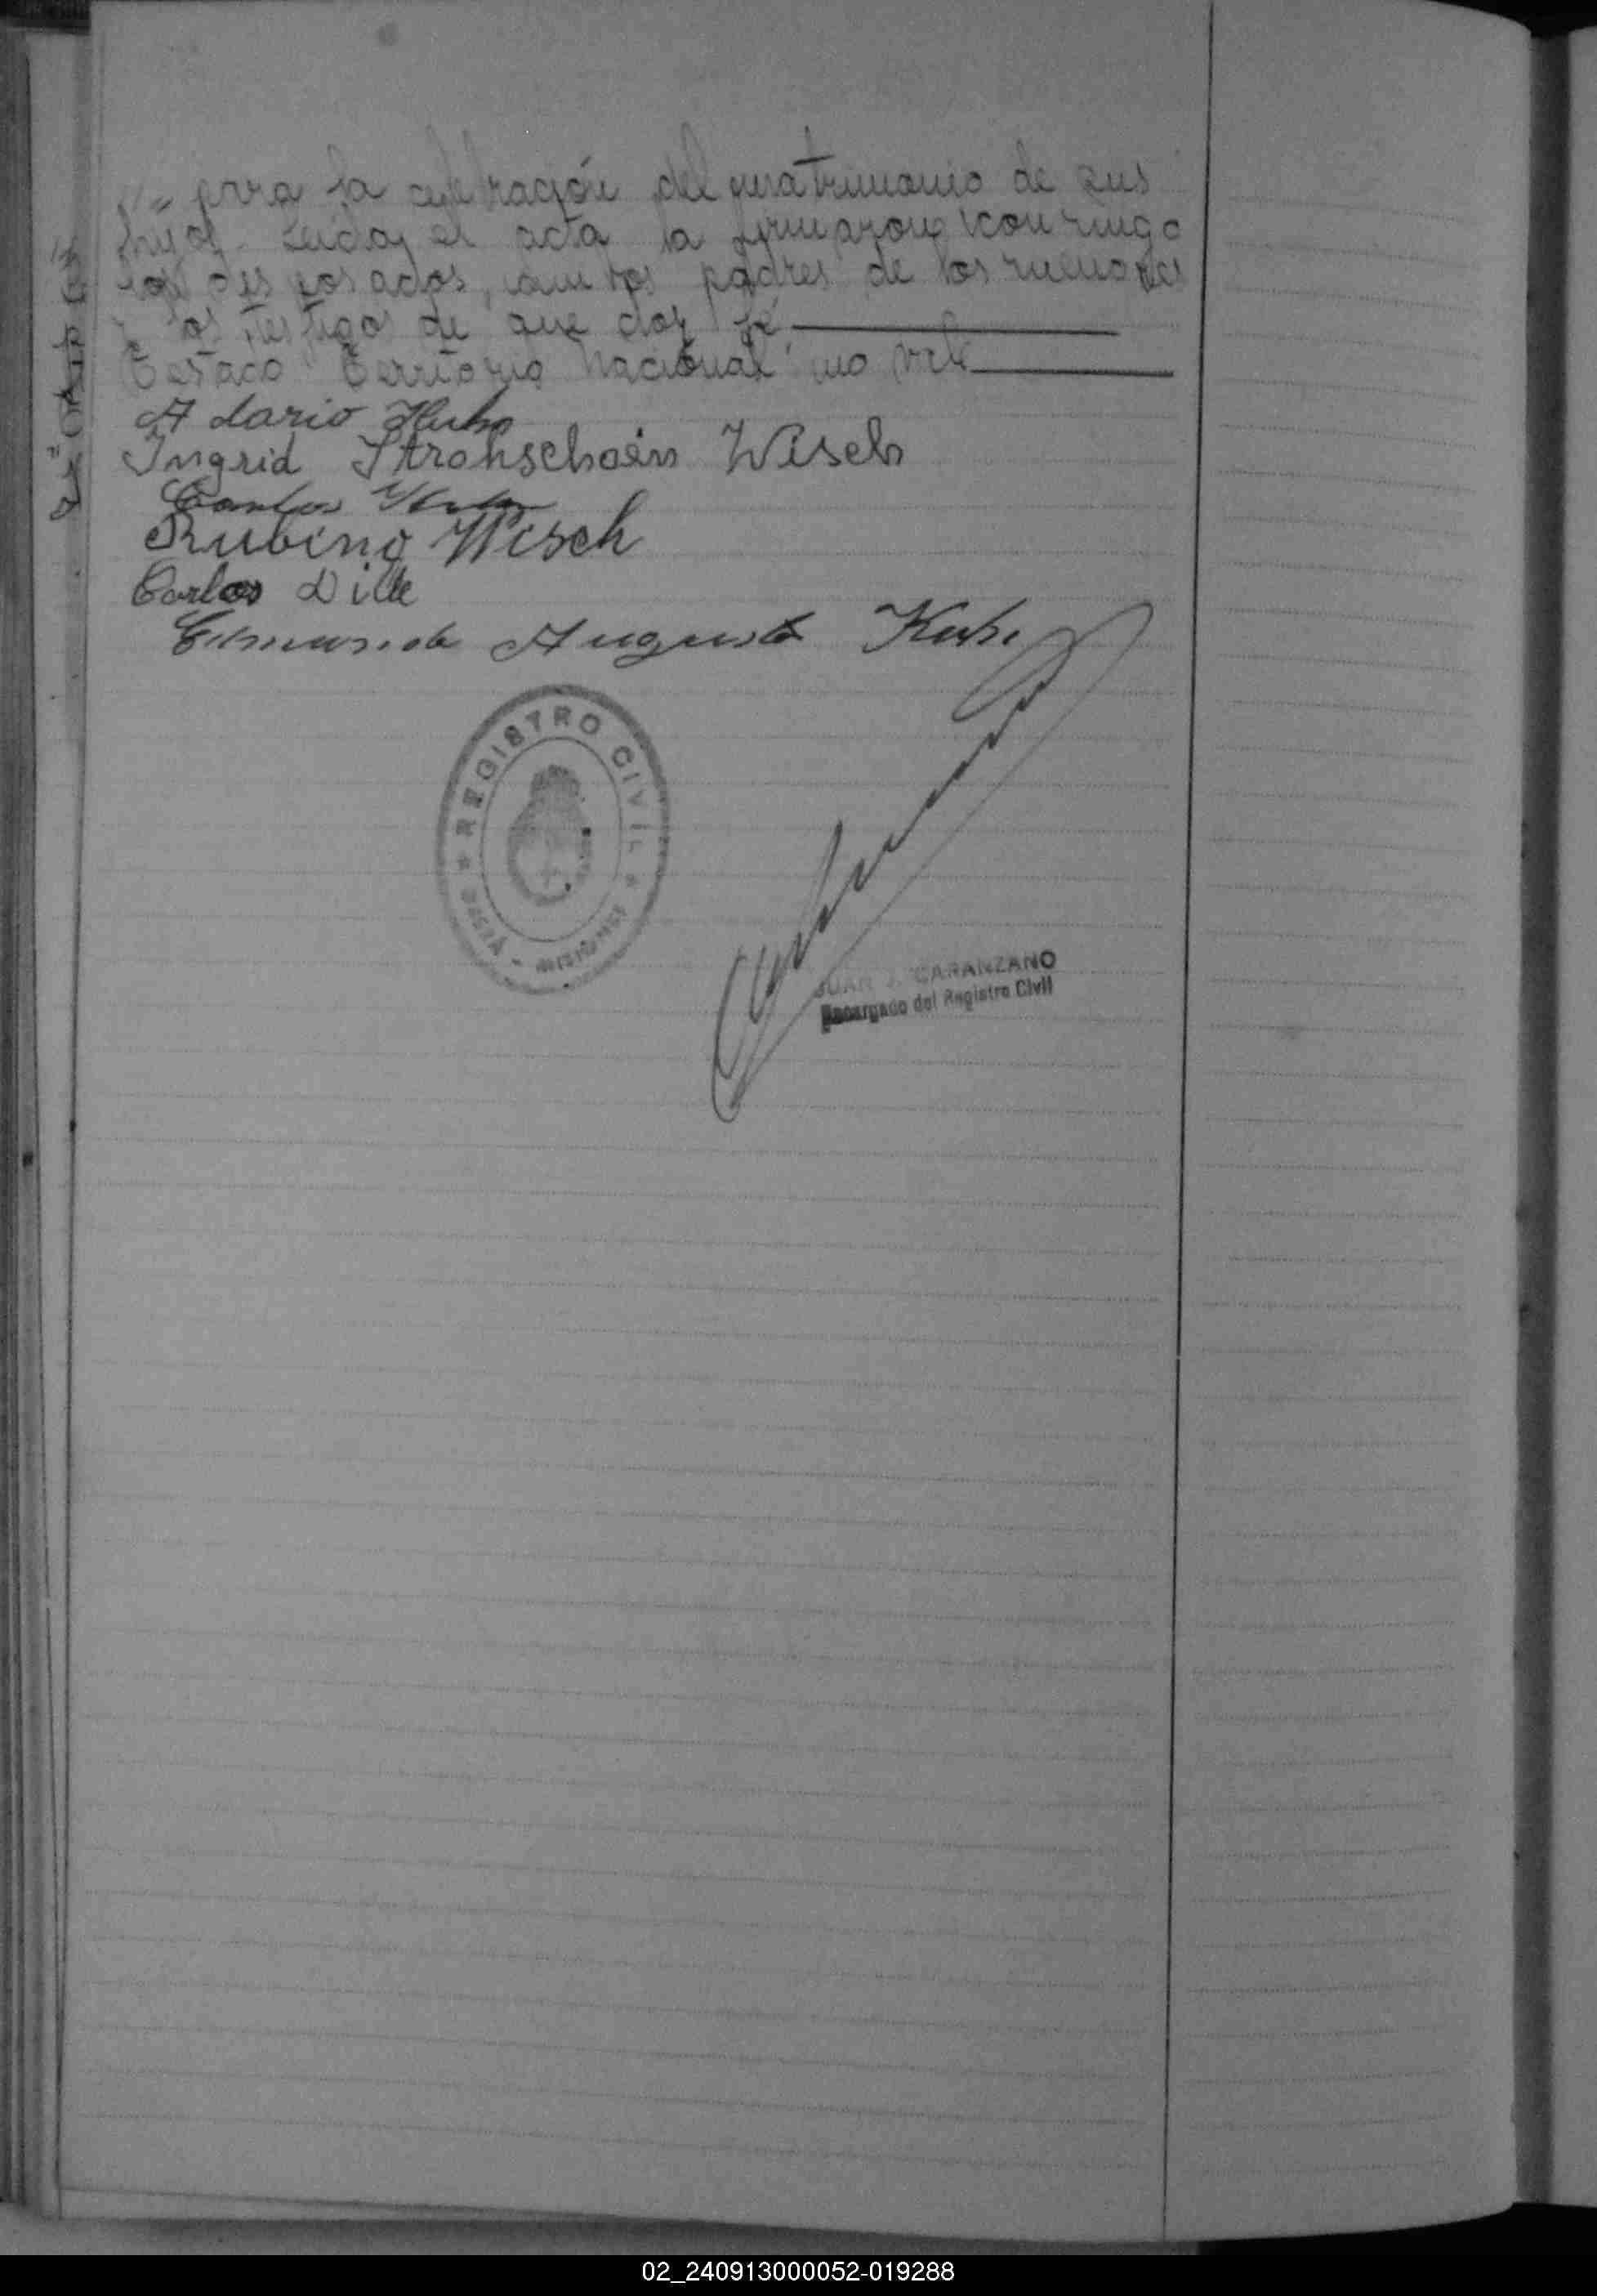 para la celebración del matrimonio de sus
hijos. Leida el acta la firmaron conmigo
los desposados, los padres de los menores
y los testigos de que doy fé
Testado "Territorio Nacional" no vale
A dario
Ingrid Strohschoein Wisch
Carlos
Rubino Wisch
Carlos Dille
Augusto
REGISTRO CIVIL
MISIONES
JUAN J. CARANZANO
Encargado del Registro Civil
02_240913000052-019288